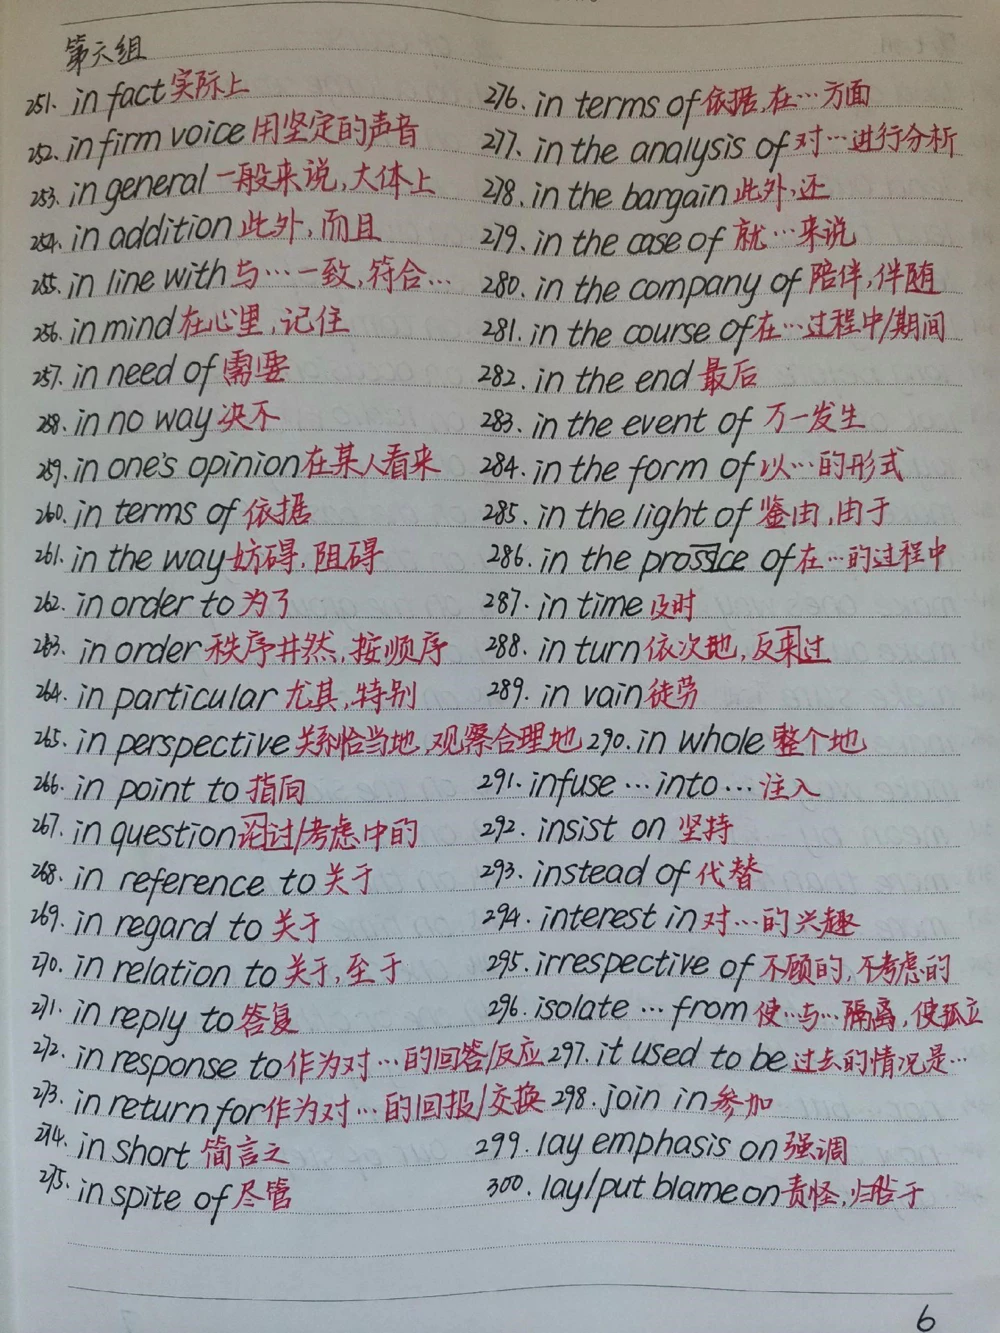 第六组
251. in fact 实际上
252. in firm voice 用坚定的声音
253. in general 一般来说,大体上
254. in addition 此外,而且
255. in line with 与…一致,符合…
256. in mind 在心里,记住
257. in need of 需要
258. in no way 决不
259. in one's opinion 在某人看来
260. in terms of 依据
261. in the way 妨碍,阻碍
262. in order to 为了
263. in order 秩序井然,按顺序
264. in particular 尤其,特别
265. in perspective 关系恰当地,观察合理地
266. in point to 指向
267. in question 论过/考虑中的
268. in reference to 关于
269. in regard to 关于
270. in relation to 关于,至于
271. in reply to 答复
272. in response to 作为对…的回答/反应
273. in return for 作为对…的回报/交换
274. in short 简言之
275. in spite of 尽管
276. in terms of 依据,在…方面
277. in the analysis of 对…进行分析
278. in the bargain 此外,还
279. in the case of 就…来说
280. in the company of 陪伴,伴随
281. in the course of 在…过程中/期间
282. in the end 最后
283. in the event of 万一发生
284. in the form of 以…的形式
285. in the light of 鉴由,由于
286. in the of 在…的过程中
287. in time 及时
288. in turn 依次地,反来过
289. in vain 徒劳
290. in whole 整个地
291. infuse … into … 注入
292. insist on 坚持
293. instead of 代替
294. interest in 对…的兴趣
295. irrespective of 不顾的,不考虑的
296. isolate … from 使…与…隔离,使孤立
297. it used to be 过去的情况是…
298. join in 参加
299. lay emphasis on 强调
300. lay/put blame on 责怪,归咎于
6